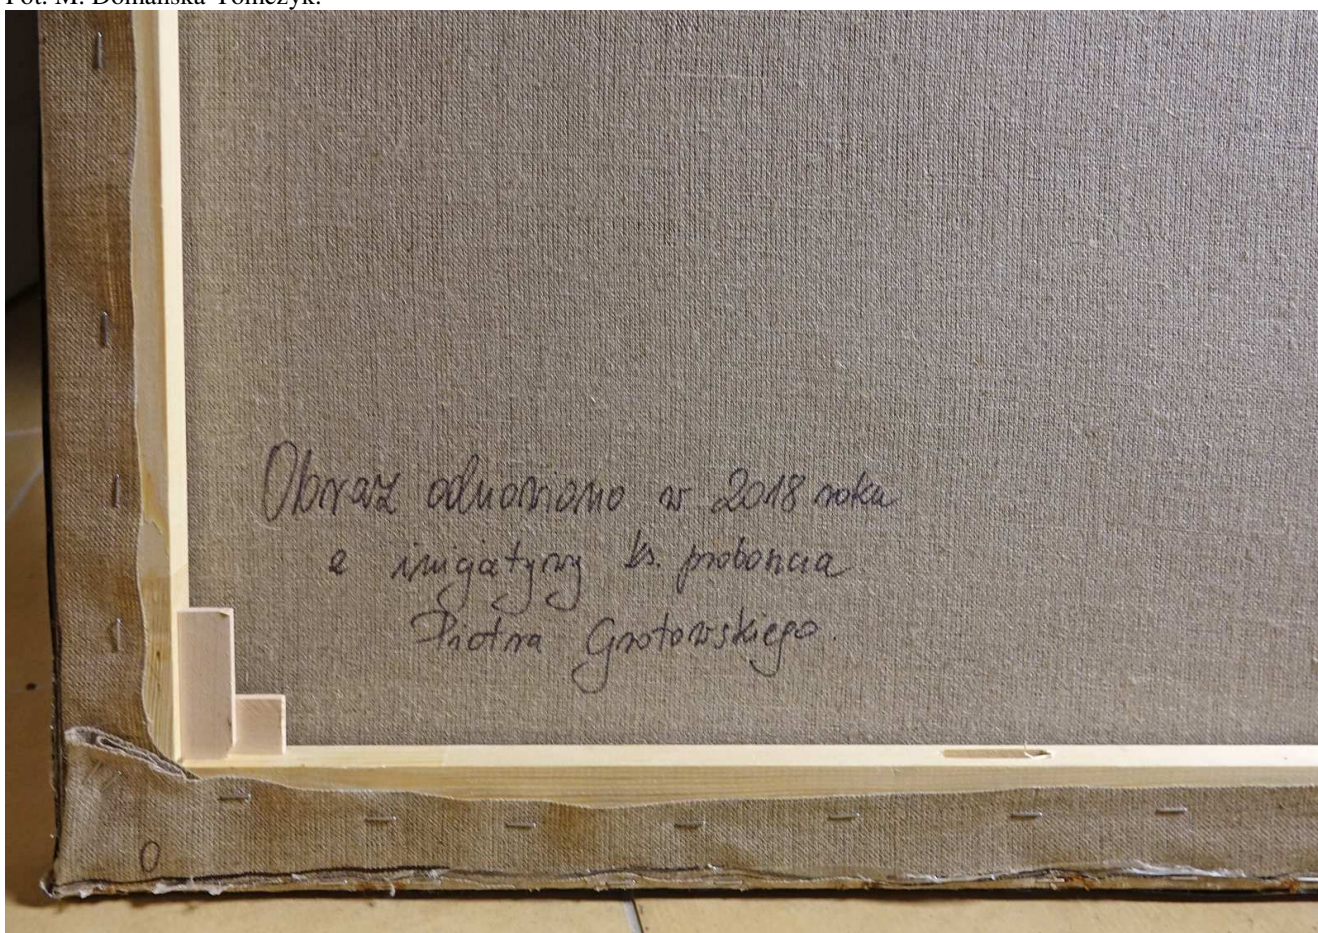 Fot. M. Domańska-Tomczyk.
Obraz odnowiono w 2018 roku
z inicjatywy ks. proboszcza
Piotra Grotowskiego.
O